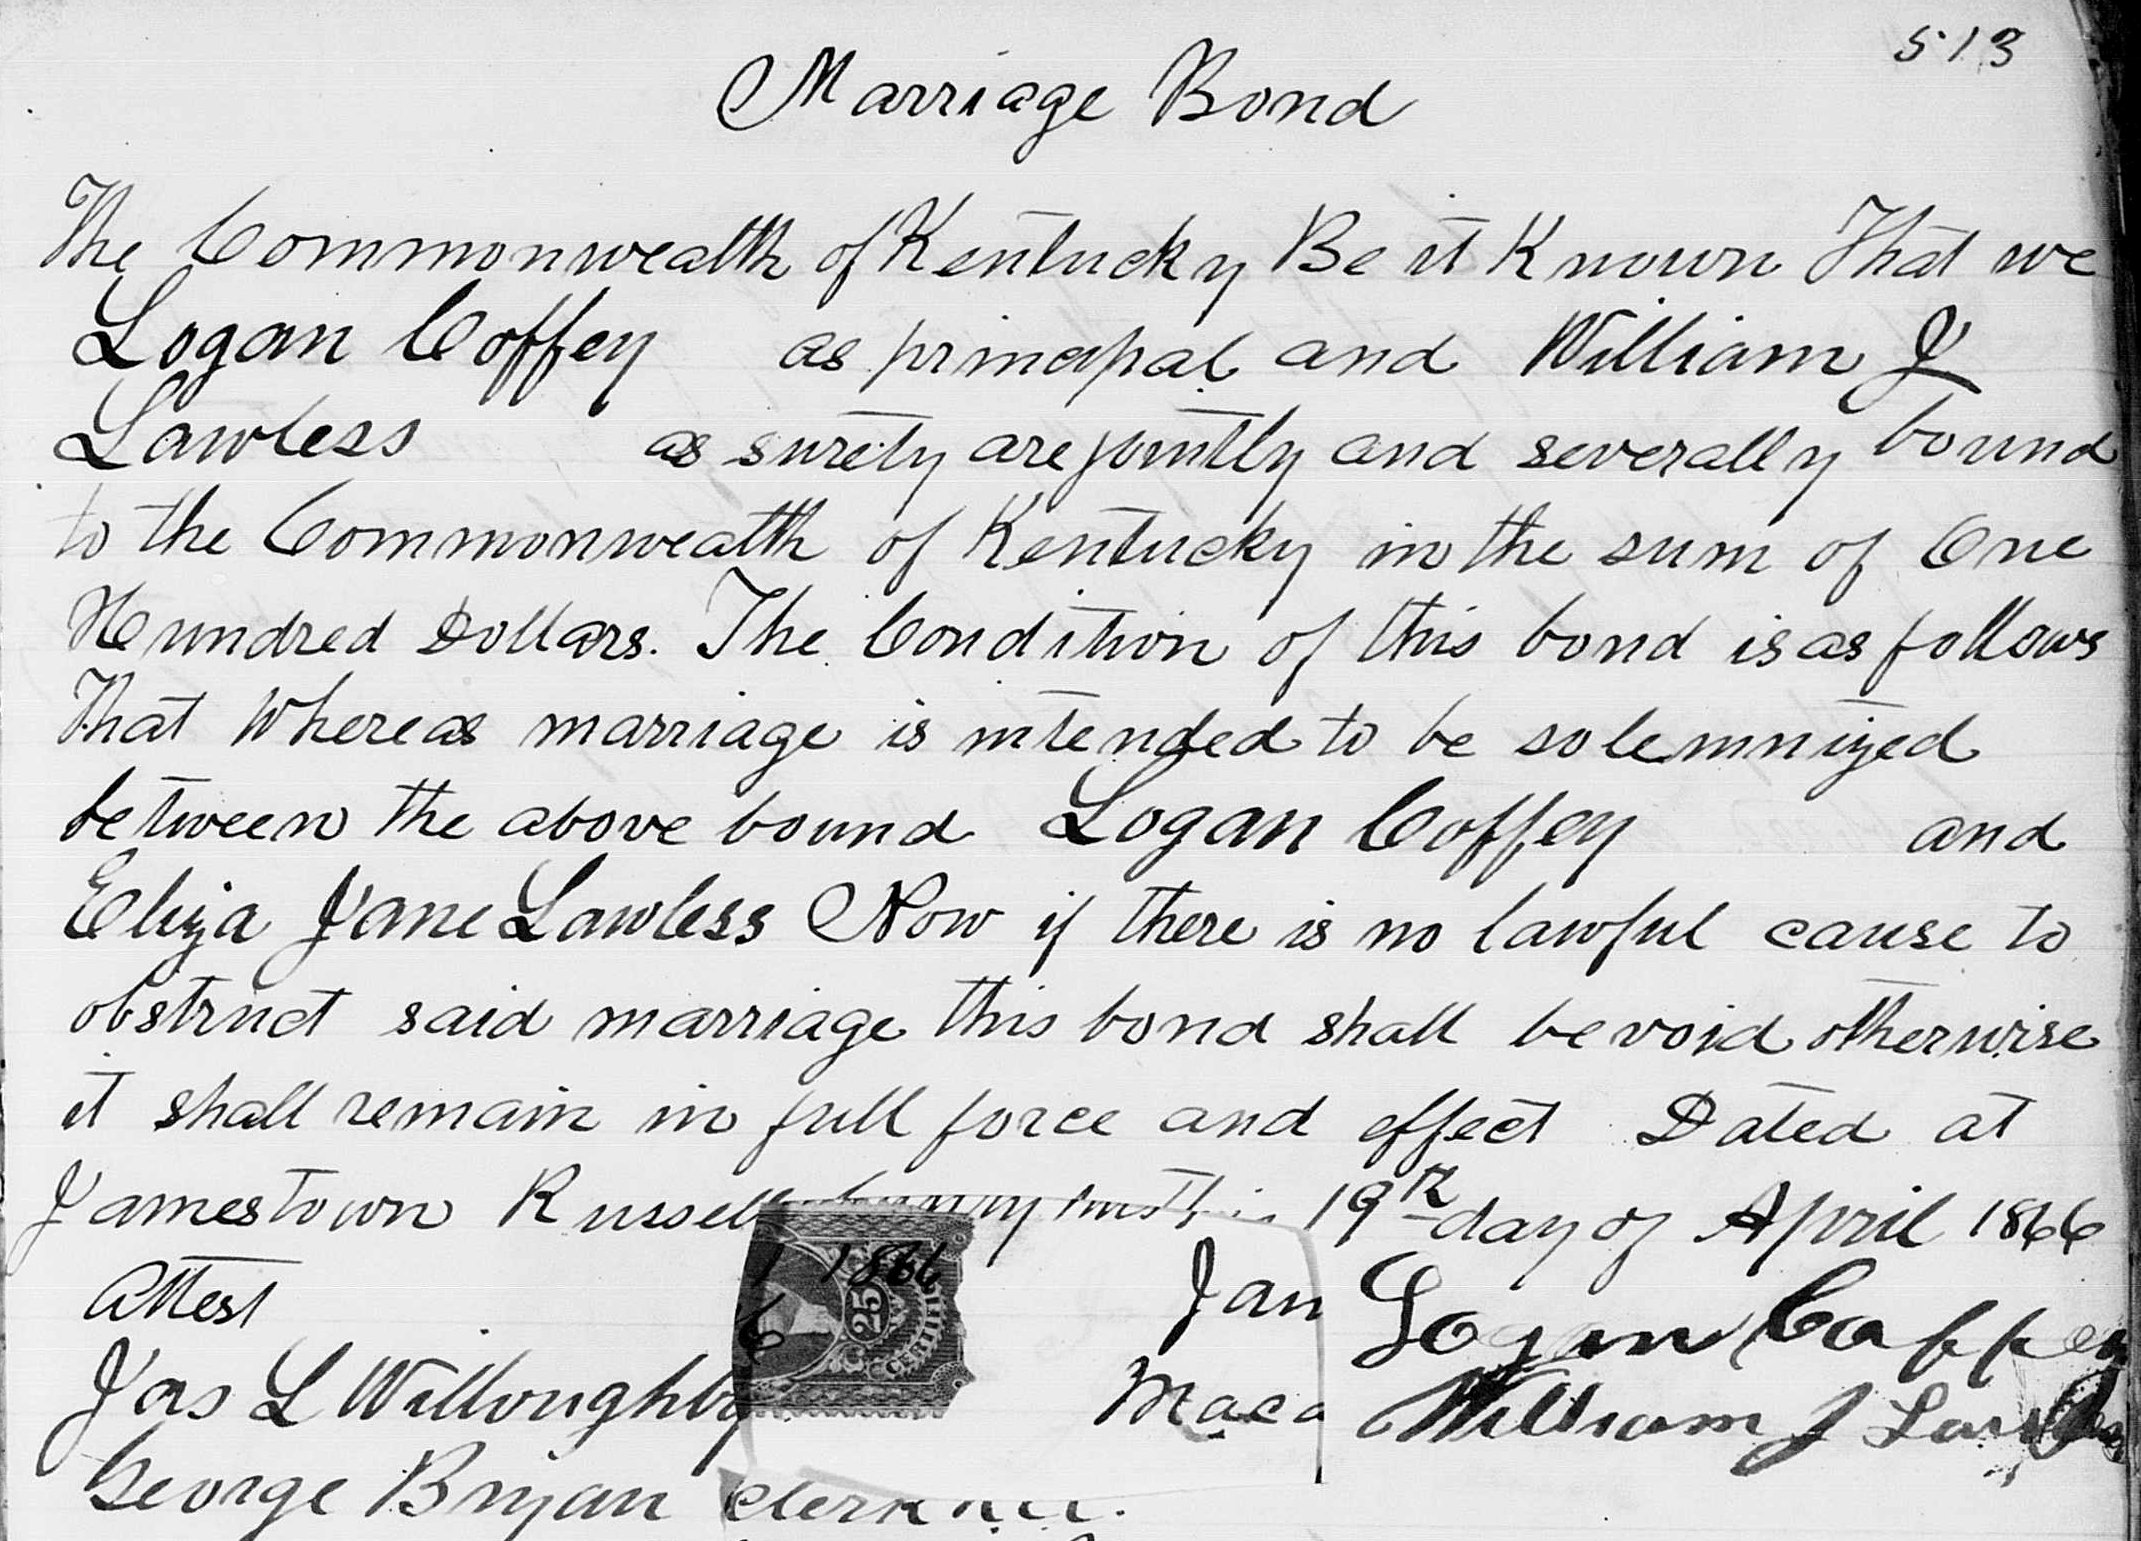 513
Marriage Bond
The Commonwealth of Kentucky Be it Known That we
Logan Coffey as principal and William J
Lawless as surety are jointly and severally bound
to the Commonwealth of Kentucky in the sum of One
Hundred Dollars. The Condition of this bond is as follows
That Whereas marriage is intended to be solemnized
between the above bound Logan Coffey and
Eliza Jane Lawless Now if there is no lawful cause to
obstruct said marriage this bond shall be void otherwise
it shall remain in full force and effect Dated at
Jamestown Russell this 19th day of April 1866
Attest
1 1866
6
25
CERTIFICATE
Jan
Logan Caffey
Jas L Willoughby
Maca
William J Lawless
George Bryan clerk